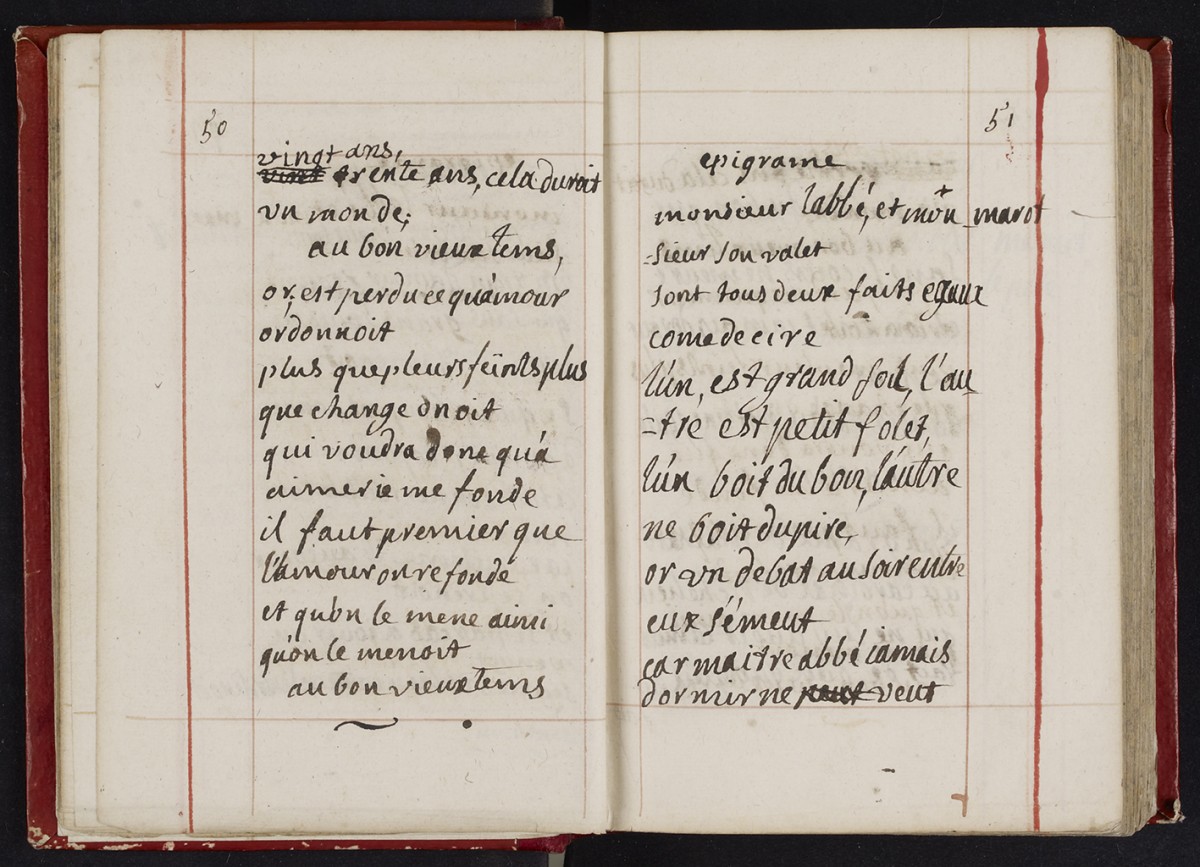 50
vingt ans,
vint trente ans, cela duroit
vn monde;
au bon vieux tems,
or, est perdu ce qu'amour
ordonnoit
plus que pleurs feints plus
que change on oit
qui voudra donc qu'a
aimer ie me fonde
il faut premier que
l'amour on refonde
et qu'on le mene ainsi
qu'on le menoit
au bon vieux tems
51
epigrame
monsieur l'abbé, et mon marot
-sieur son valet
sont tous deux faits egaux
come de cire
l'un, est grand fol, l'au-
-tre est petit folet,
l'un boit du bon, l'autre
ne boit du pire,
or vn debat au soir entre
eux s'émeut
car maitre abbé iamais
dormir ne peut veut